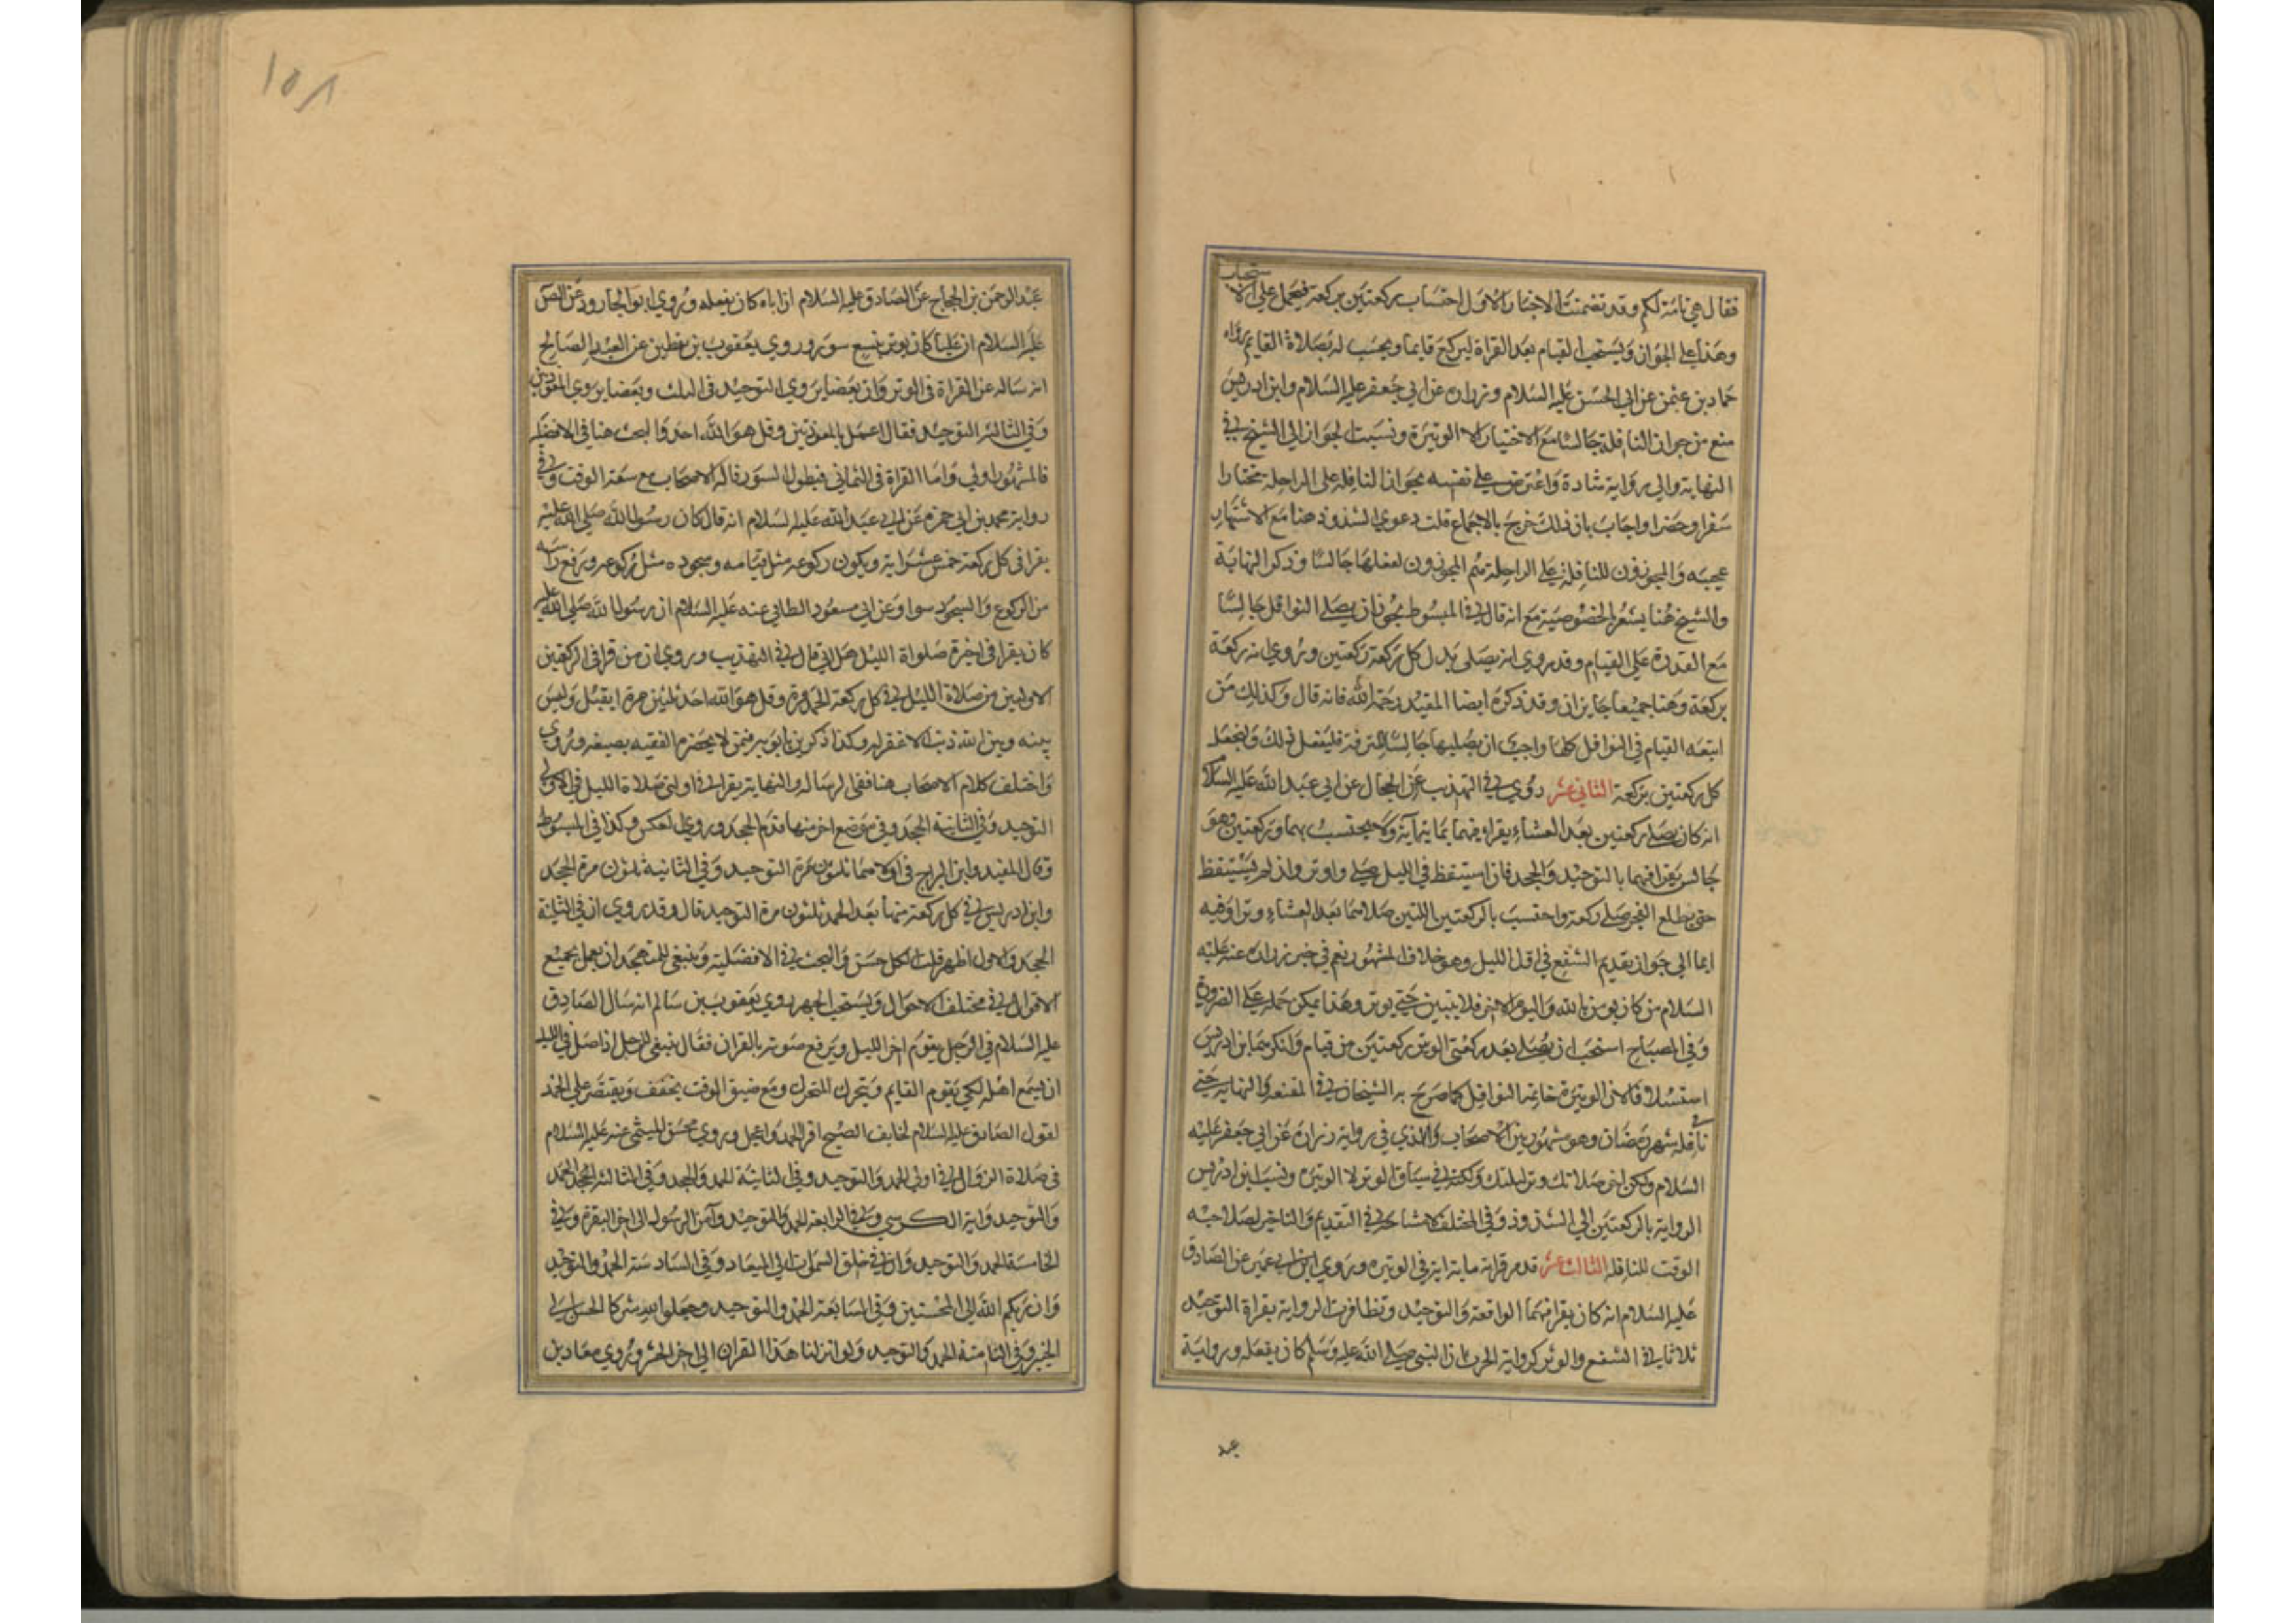 فقال هي تامة لكم وقد تضمنت الاخبار الاول احتساب ركعتين بركعة فيحمل على الاستحباب
وهذا على الجواز ويستحب القيام بعد القراة ليركع قايما ويحسب له بصلاة القايم رواه
حماد بن عثمن عن ابي الحسن عليه السلام وزراره عن ابي جعفر عليه السلام وابن ادريس
منع من جواز النافلة جالسا مع الاختيار الا الوتيرة ونسبت الجواز الى الشيخ في
النهاية والى رواية شاذة واعترض على نفسه بجواز النافلة على الراحلة مختارا
سفرا وحضرا واجاب بان ذلك خرج بالاجماع قلت دعوي الشذوذ هنا مع الاشتهار
عجيبه والمجوزون للنافلة على الراحلة هم المجوزون لفعلها جالسا وذكر النهاية
والشيخ هنا يشعر بالخصوصية مع انه قال في المبسوط يجوز ان يصلي النوافل جالسا
مع القدرة على القيام وقد روي انه يصلى بدل كل ركعة ركعتين وروي انه ركعة
بركعة وهنا جميعا جايزان وقد ذكره ايضا المفيد رحمة الله فانه قال وكذلك من
اتعبه القيام في النوافل كلها واحب ان يصليها جالسا للترفه فليفعل ذلك وليجعل
كل ركعتين بركعة الثاني عشر روي في التهذيب عن الحجال عن ابي عبد الله عليه السلام
انه كان يصلي ركعتين بعد العشاء يقرا فيهما بماية آية ولا يحتسب بهما وركعتين وهو
جالس يقرا فيهما بالتوحيد والجحد فان استيقظ في الليل صلى واوتر وان لم يستيقظ
حتى يطلع الفجر صلى ركعة واحتسب بالركعتين اللتين صلاهما بعد العشاء وترا وفيه
ايما الى جواز تقديم الشفع في اول الليل وهو خلاف المشهور نعم في خبر زراره عنه عليه
السلام من كان يومن بالله واليوم الاخر فلا يبيتن حتى يوتر وهذا يمكن حمله على الضرورة
وفي المصباح استحب ان يصلي بعد ركعتي الوتر ركعتين من قيام وانكرهما ابن ادريس
استسلافا لان الوتيرة خاتمة النوافل كما صرح به الشيخان في المقنعه والنهاية حتى
في نافلة شهر رمضان وهو مشهور بين الاصحاب والذي في رواية زرارة عن ابي جعفر عليه
السلام وليكن اخر صلاتك وتر ليلتك ولكنه في سياق الوتر لا الوتيره ونسب ابن ادريس
الرواية بالركعتين الى الشذوذ وفي المختلف لا مشاحة في التقديم والتاخير لصلاحيه
الوقت للنافلة الثالث عشر قد مر قراة ماية اية في الوتيره وروي ابن ابي عمير عن الصادق
عليه السلام انه كان يقرا فيهما الواقعة والتوحيد وتظافرت الرواية بقراة التوحيد
ثلاثا في الشفع والوتر كرواية الحرث ان النبي صلى الله عليه وسلم كان يفعله ورواية
عبد
١٥٨
عبد الرحمن بن الحجاج عن الصادق عليه السلام ان اباه كان يفعله وروي ابو الجارود عن الصا
عليه السلام ان عليا كان يوتر بتسع سور وروي يعقوب بن يقطين عن العبد الصالح
انه ساله عن القراة في الوتر وان بعضا يروي التوحيد في الثلث وبعضا يروي المعوذتين
وفي الثالثه التوحيد فقال اعمل بالمعوذتين وقل هو الله احد والبحث هنا في الافضلية
فالمشهور اولى واما القراة في الثماني فبطول السور قاله الاصحاب مع سعة الوقت وفي
رواية محمد بن ابي حمزه عن ابي عبد الله عليه السلام انه قال كان رسول الله صلى الله عليه
يقرا في كل ركعة خمس عشر اية ويكون ركوعه مثل قيامه وسجوده مثل ركوعه ورفع راسه
من الركوع والسجود سوا وعن ابي مسعود الطائي عنه عليه السلام ان رسول الله صلى الله عليه
كان يقرا في اخرة صلواة الليل هل اتى قال في التهذيب وروي ان من قرا في الركعتين
الاوليين من صلاة الليل في كل ركعة الحمد مرة وقل هو الله احد ثلثين مرة انفتل وليس
بينه وبين الله ذنب الا غفر له وكذا ذكر بن بابويه فيمن لا يحضره الفقيه بصيغة وروي
واختلف كلام الاصحاب هنا ففي الرساله والنهاية يقرا في اولتي صلاة الليل في الاولى
التوحيد وفي الثانية الجحد وفي موضع اخر منها قدم الجحد وروي العكس وكذا في المبسوط
وقال المفيد وابن البراج في اولاهما ثلثون مرة التوحيد وفي الثانية ثلثون مرة الجحد
وابن ادريس في كل ركعة منهما بعد الحمد ثلثون مرة التوحيد قال وقد روي ان في الثانية
الجحد والاول اظهر قلت الكل حسن والبحث في الافضلية وينبغي للمتهجد ان يعمل بجميع
الاقوال في مختلف الاحوال ويستحب الجهر روي يعقوب بن سالم انه سال الصادق
عليه السلام في الرجل يقوم اخر الليل ويرفع صوته بالقران فقال ينبغي للرجل اذا صلى في الليل
ان يسمع اهله لكي يقوم القايم ويتحرك المتحرك ومع ضيق الوقت يخفف ويقتصر على الحمد
لقول الصادق عليه السلام لخايف الصبح اقرا الحمد واعجل وروي محسن الميثمي عنه عليه السلام
في صلاة الزوال في اولى الحمد والتوحيد وفي الثانية الحمد والجحد وفي الثالثه الحمد
والتوحيد واية الكرسي وفي الرابعة الحمد والتوحيد وآمن الرسول الى اخر البقرة وفي
الخامسة الحمد والتوحيد وان في خلق السموات الى الميعاد وفي السادسة الحمد والتوحيد
وان ربكم الله الى المحسنين وفي السابعة الحمد والتوحيد وجعلوا لله شركا الجن الى
الخبير وفي الثامنة الحمد والتوحيد ولو انزلنا هذا القران الى اخر الحشر وروي معاذ بن